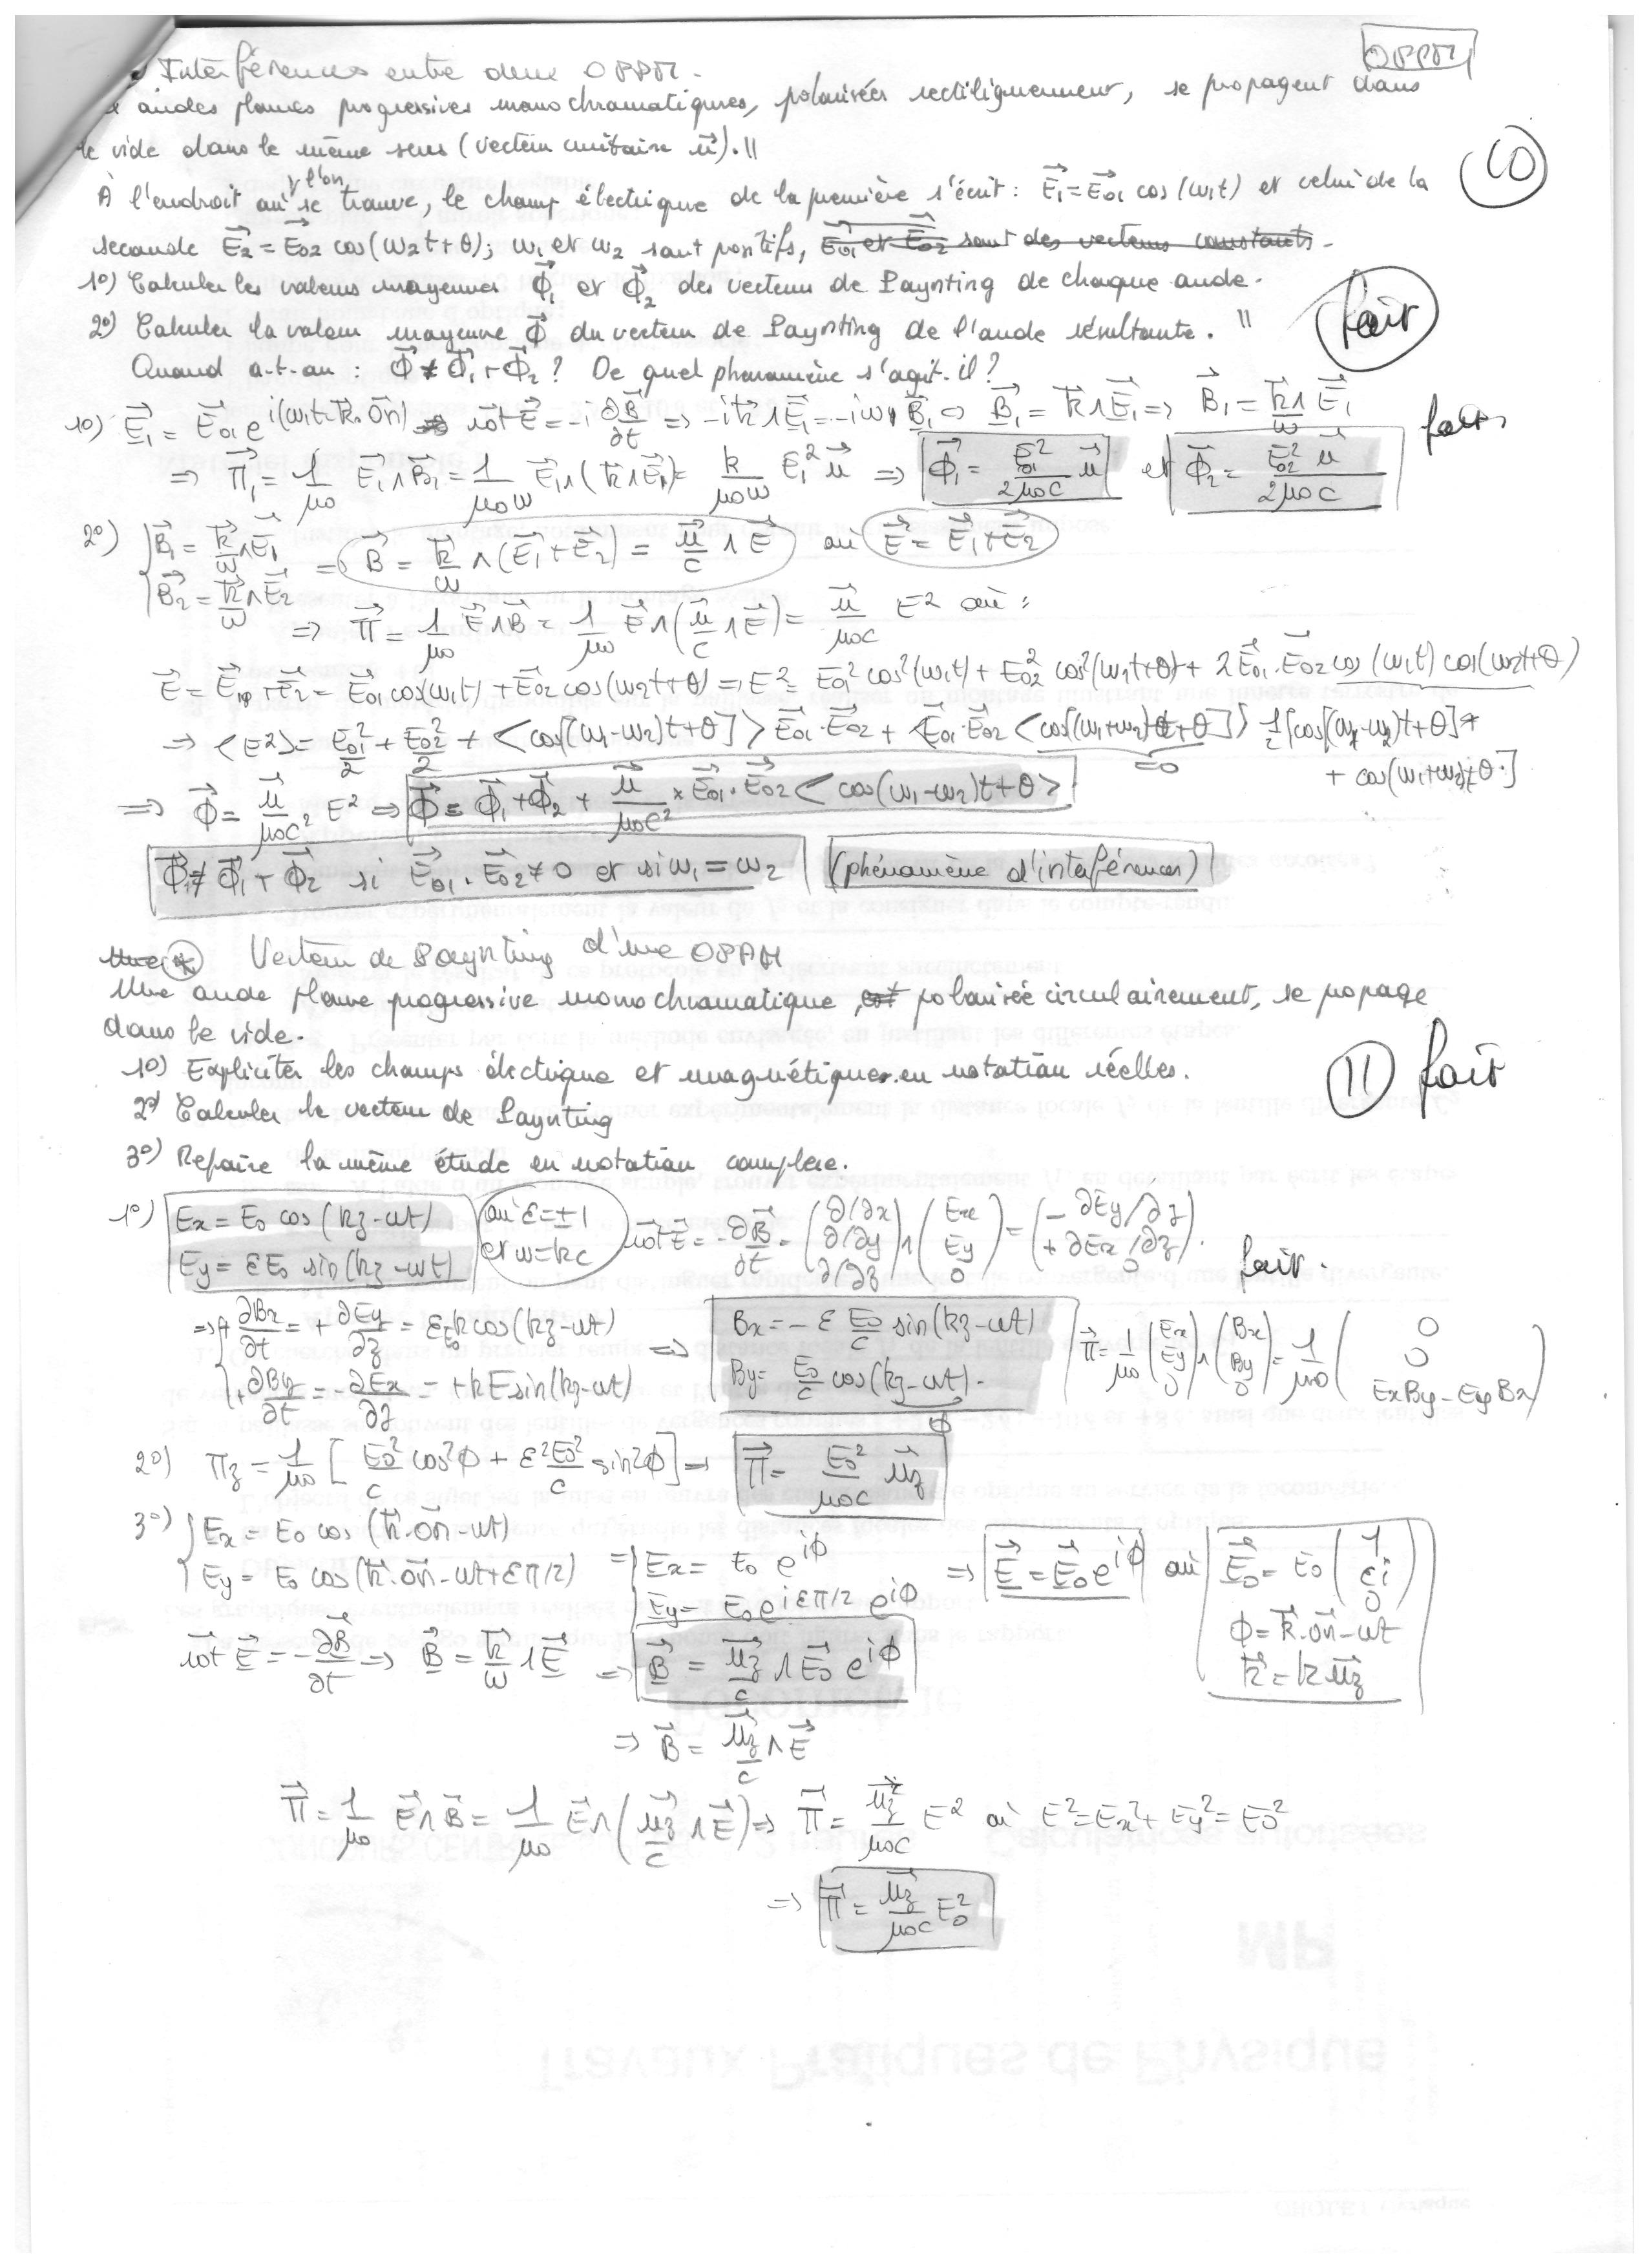 OPPM
Interférences entre deux OPPM.
ondes planes progressives monochromatiques, polarisées rectilignement, se propagent dans
le vide dans le même sens (vecteur unitaire u⃗). ||
À l'endroit où y l'on se trouve, le champ électrique de la première s'écrit : E⃗₁ = E⃗₀₁ cos(ω₁t) et celui de la
10
seconde E⃗₂ = E⃗₀₂ cos(ω₂t+θ); ω₁ et ω₂ sont positifs, E⃗₀₁ et E⃗₀₂ sont des vecteurs constants.
1°) Calculer les valeurs moyennes Φ⃗₁ et Φ⃗₂ des vecteurs de Poynting de chaque onde.
2°) Calculer la valeur moyenne Φ⃗ du vecteur de Poynting de l'onde résultante. ||
fait
Quand a-t-on : Φ⃗ ≠ Φ⃗₁ + Φ⃗₂ ? De quel phénomène s'agit-il ?
1°) E⃗₁ = E⃗₀₁ e^i(ω₁t-k⃗.OM⃗) rot⃗ E⃗ = -i ∂B⃗/∂t ⇒ -ik⃗∧E⃗₁ = -iω₁B⃗₁ ⇔ B⃗₁ = k⃗∧E⃗₁ ⇒ B⃗₁ = k⃗∧E⃗₁/ω
⇒ Π⃗₁ = 1/μ₀ E⃗₁∧B⃗₁ = 1/μ₀ω E⃗₁∧(k⃗∧E⃗₁) = k/μ₀ω E₁² u⃗ ⇒ Φ⃗₁ = E₀₁²/2μ₀c u⃗ et Φ⃗₂ = E₀₂² u⃗/2μ₀c
2°) { B⃗₁ = k⃗/ω ∧E⃗₁ ; B⃗₂ = k⃗/ω ∧E⃗₂ ⇒ B⃗ = k⃗/ω ∧(E⃗₁+E⃗₂) = u⃗/c ∧ E⃗ où E⃗ = E⃗₁+E⃗₂
⇒ Π⃗ = 1/μ₀ E⃗∧B⃗ = 1/μ₀ E⃗∧(u⃗/c ∧E⃗) = u⃗/μ₀c E² où :
E⃗ = E⃗₁ + E⃗₂ = E⃗₀₁ cos(ω₁t) + E⃗₀₂ cos(ω₂t+θ) ⇒ E² = E₀₁² cos²(ω₁t) + E₀₂² cos²(ω₂t+θ) + 2E⃗₀₁.E⃗₀₂ cos(ω₁t) cos(ω₂t+θ)
⇒ <E²> = E₀₁²/2 + E₀₂²/2 + <cos[(ω₁-ω₂)t+θ]> E⃗₀₁.E⃗₀₂ + E⃗₀₁.E⃗₀₂ <cos[(ω₁+ω₂)t+θ]> =0 1/2[cos[(ω₁-ω₂)t+θ]+
+ cos(ω₁+ω₂)t+θ.]
⇒ Φ⃗ = u⃗/μ₀c² E² ⇒ Φ⃗ = Φ⃗₁+Φ⃗₂ + u⃗/μ₀c² × E⃗₀₁.E⃗₀₂ <cos(ω₁-ω₂)t+θ>
Φ⃗ ≠ Φ⃗₁ + Φ⃗₂ si E⃗₀₁.E⃗₀₂ ≠ 0 et si ω₁ = ω₂ (phénomène d'interférences)
Une * Vecteur de Poynting d'une OPPM
Une onde plane progressive monochromatique, est polarisée circulairement, se propage
dans le vide.
1°) Expliciter les champs électrique et magnétique en notation réelles.
11 fait
2°) Calculer le vecteur de Poynting
3°) Refaire la même étude en notation complexe.
1°) Ex = E₀ cos(kz-ωt) ; Ey = εE₀ sin(kz-ωt) où ε=±1 et ω=kc rot⃗ E⃗ = -∂B⃗/∂t = (∂/∂x ; ∂/∂y ; ∂/∂z) ∧ (Ex ; Ey ; 0) = (-∂Ey/∂z ; +∂Ex/∂z ; 0). fait.
⇒ { +∂Bx/∂t = +∂Ey/∂z = εE₀k cos(kz-ωt) ; +∂By/∂t = -∂Ex/∂z = +kE sin(kz-ωt) ⇒ Bx = -ε E₀/c sin(kz-ωt) ; By = E₀/c cos(kz-ωt). φ Π⃗ = 1/μ₀ (Ex ; Ey ; 0) ∧ (Bx ; By ; 0) = 1/μ₀ (0 ; 0 ; ExBy-EyBx)
2°) Πz = 1/μ₀ [E₀²/c cos²φ + ε²E₀²/c sin²φ] ⇒ Π⃗ = E₀²/μ₀c u⃗z
3°) { Ex = E₀ cos(k⃗.OM⃗-ωt) ; Ey = E₀ cos(k⃗.OM⃗-ωt+επ/2) ⇒ { Ex = E₀ e^iφ ; Ey = E₀ e^iεπ/2 e^iφ ⇒ E⃗ = E⃗₀e^iφ où E⃗₀ = E₀ (1 ; εi ; 0)
φ = k⃗.OM⃗-ωt
k⃗ = k u⃗z
rot⃗ E⃗ = -∂B⃗/∂t ⇒ B⃗ = k⃗/ω ∧E⃗ ⇒ B⃗ = u⃗z/c ∧E⃗₀ e^iφ
⇒ B⃗ = u⃗z/c ∧E⃗
Π⃗ = 1/μ₀ E⃗∧B⃗ = 1/μ₀ E⃗∧(u⃗z/c ∧E⃗) ⇒ Π⃗ = u⃗z/μ₀c E² où E² = Ex²+Ey² = E₀²
⇒ Π⃗ = u⃗z/μ₀c E₀²